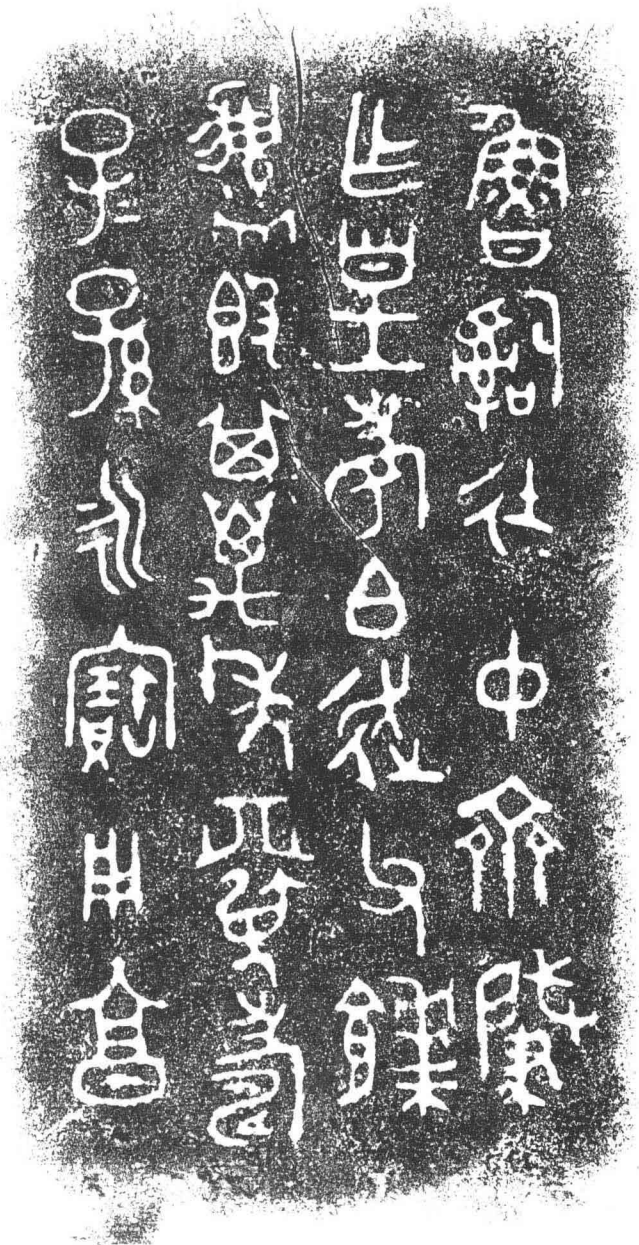 魯𤔲徒中齊肇
乍皇考白走父䭯
盨𣪘其萬年眉壽
子=孫=永寶用享